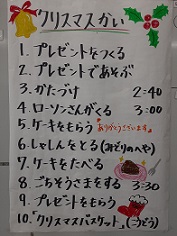 クリスマスかい
1. プレゼントをつくる
2. プレゼントであそぶ
3. かたづけ 2:40
4. ローソンさんがくる 3:00
5. ケーキをもらう "ありがとうございます"
6. しゃしんをとる(みどりのへや)
7. ケーキをたべる
8. ごちそうさまをする 3:30
9. プレゼントをもらう
10. 「クリスマスバスケット」(つどう)